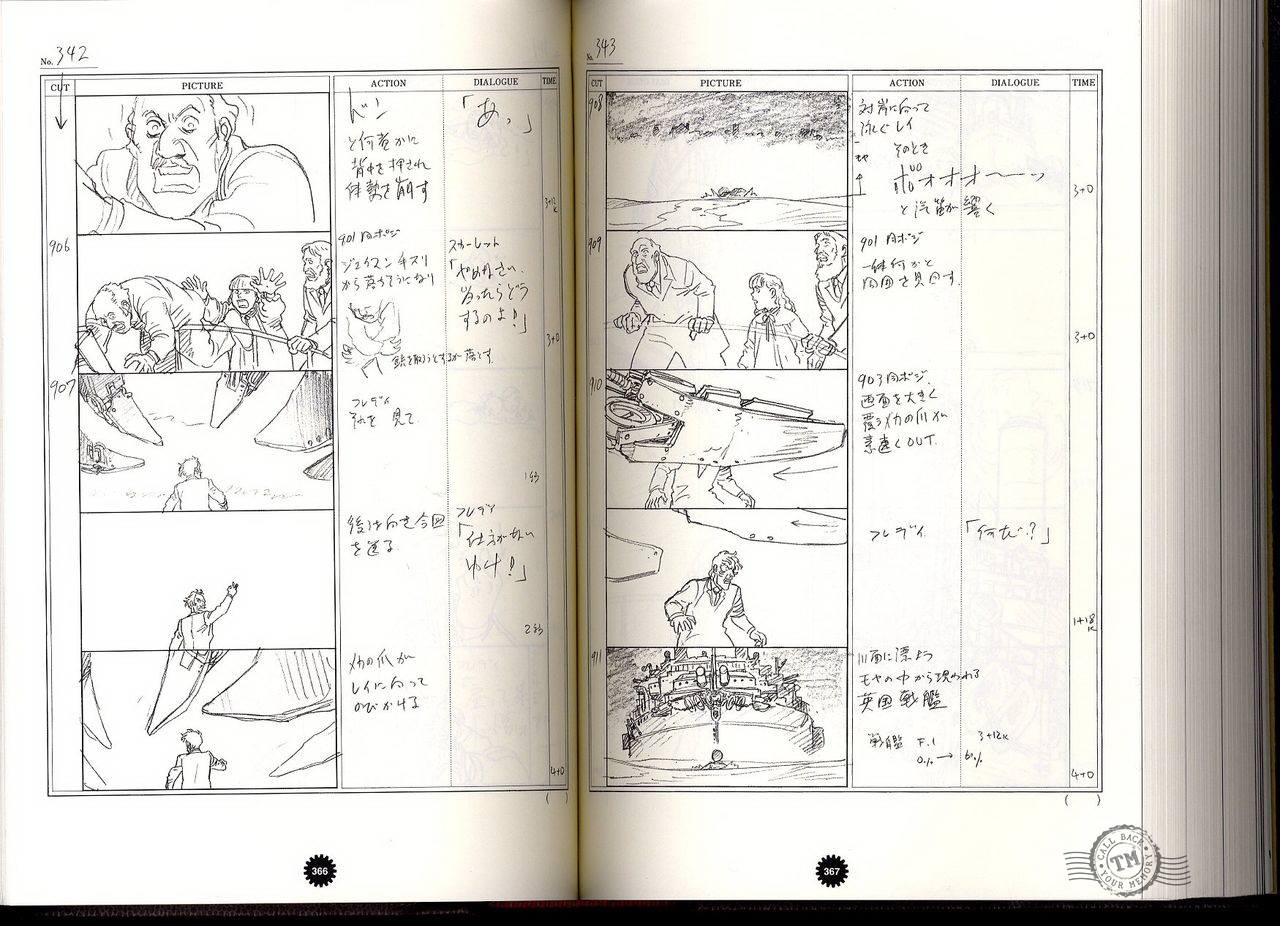 No. 342
CUT
PICTURE
ACTION
DIALOGUE
TIME
ドン
と何者かに
背中を押され
体勢を崩す
「あっ」
3+12K
906
901 同ポジ
ジェイスン手スリ
から落ちそうになり
銃を取ろうとするが落とす
スカーレット
「やめなさい
当ったらどう
するのよ!」
3+0
907
フレディ
それを見て
後は向き今回
を送る
フレディ
「仕方がない
ゆけ!」
メカの爪が
レイに向って
のびかける
4+0
( )
366
No. 343
CUT
PICTURE
ACTION
DIALOGUE
TIME
908
対岸に向って
泳ぐレイ
そのとき
ボオオオ〜ッ
と汽笛が響く
3+0
909
901 同ポジ
一体何かと
周囲を見回す
3+0
910
903 同ポジ
画面を大きく
覆うメカの爪が
素速くOUT
フレディ
「何だ?」
1+18K
911
川面に漂よう
モヤの中から現われる
英国戦艦
戦艦 F.I
3+12K
0% → 60%
4+0
( )
367
CALL BACK
TM
YOUR MEMORY